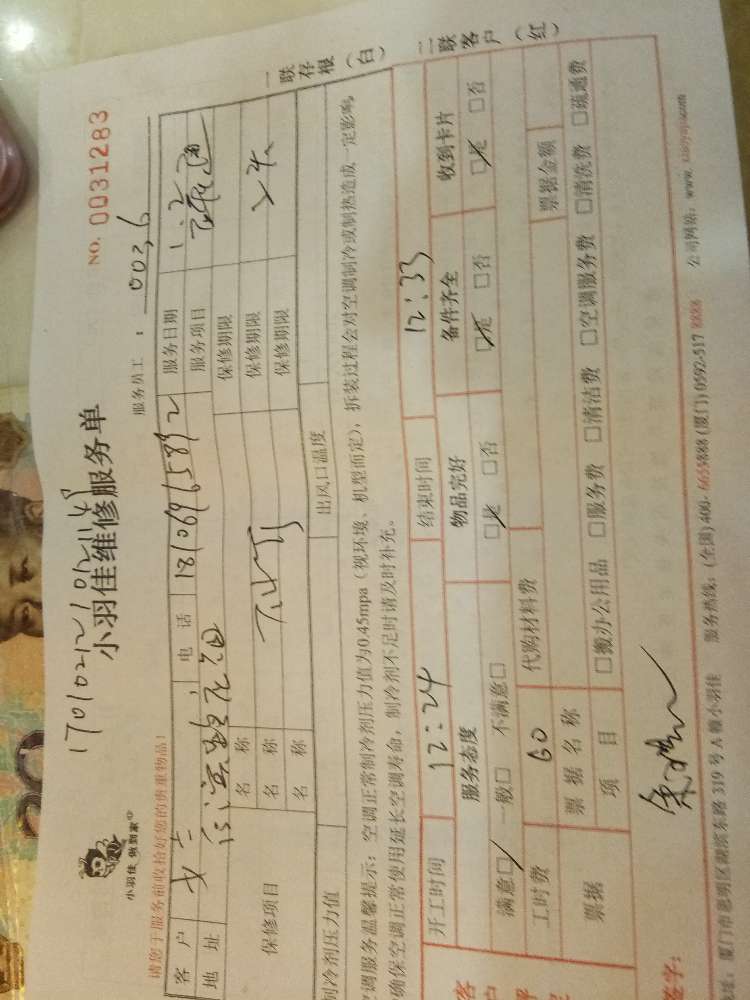 小羽佳 做到家
小羽佳维修服务单
NO. 0031283
请您于服务前收拾好您的贵重物品!
服务员工: 0036
客户 女士 电话 18106965892 服务日期 1.2
地址 服务项目
保修项目 名称 保修期限
名称 下水 保修期限
名称 保修期限
制冷剂压力值 出风口温度
空调服务温馨提示: 空调正常制冷剂压力值为0.45mpa(视环境、机型而定), 拆装过程会对空调制冷或制热造成一定影响,
确保空调正常使用延长空调寿命, 制冷剂不足时请及时补充。
一联存根(白) 二联客户(红)
开工时间 12:24 结束时间 12:33
服务态度 物品完好 备件齐全 收到卡片
满意□ 一般□ 不满意□ □是 □否 □是 □否 □是 □否
工时费 60 代购材料费
票据 票据名称 票据金额
项目 □搬办公用品 □服务费 □清洁费 □空调服务费 □清洗费 □疏通费
签字:
厦门市思明区湖滨东路319号A幢小羽佳 服务热线: (全国)400-6655888 (厦门)0592-517 8888 公司网站: www.xiaoyujia.com